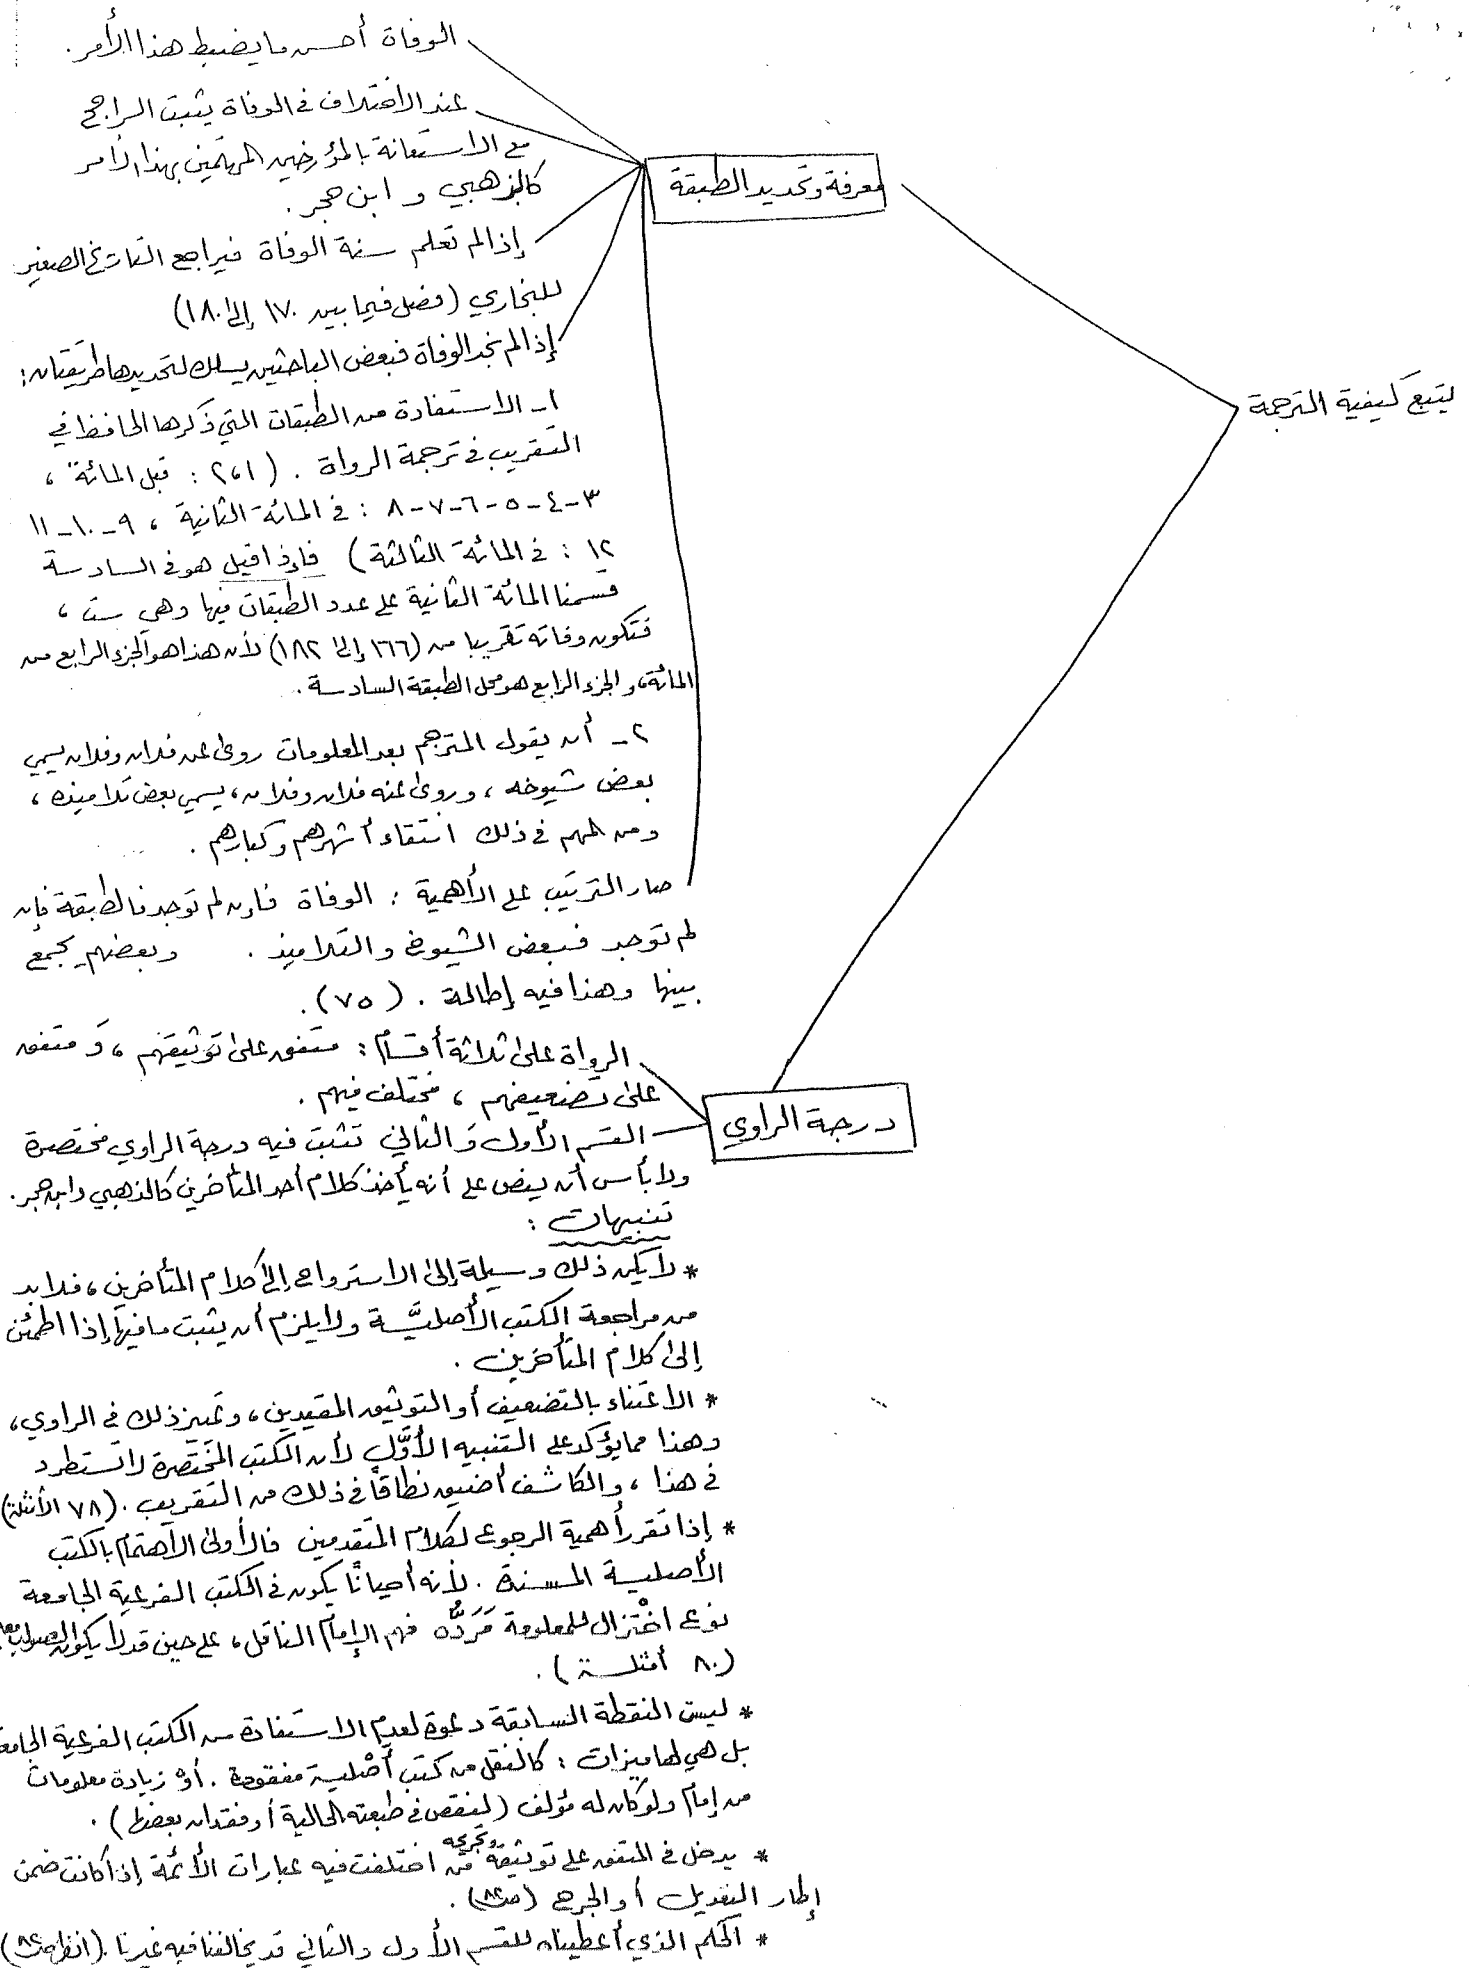 يتبع كيفية الترجمة
معرفة وتحديد الطبقة
الوفاة أحسن ما يضبط هذا الأمر.
عند الاختلاف في الوفاة يثبت الراجح
مع الاستعانة بالمؤرخين المهتمين بهذا الأمر
كالذهبي و ابن حجر.
إذا لم تعلم سنة الوفاة فيراجع التاريخ الصغير
للبخاري (فصل فيما بين ١٧٠ إلى ١٨٠)
إذا لم نجد الوفاة فبعض الباحثين يسلك لتحديدها طريقتان:
١- الاستفادة من الطبقات التي ذكرها الحافظ في
التقريب في ترجمة الرواة. (١،٢ : قبل المائة،
٣-٤-٥-٦-٧-٨ : في المائة الثانية، ٩-١٠-١١
١٢ : في المائة الثالثة) فإذا قيل هو في السادسة
قسمنا المائة الثانية على عدد الطبقات فيها وهي ست،
فتكون وفاته تقريبا من (١٦٦ إلى ١٨٢) لأن هذا هو الجزء الرابع من
المائة، والجزء الرابع هو محل الطبقة السادسة.
٢- أن يقول المترجم بعد المعلومات روى عن فلان وفلان يسمي
بعض شيوخه، وروى عنه فلان وفلان، يسمي بعض تلاميذه،
ومن المهم في ذلك انتقاء أشهرهم وكبارهم.
صار الترتيب على الأهمية : الوفاة فإن لم توجد فالطبقة فإن
لم توجد فبعض الشيوخ والتلاميذ. وبعضهم يجمع
بينها وهذا فيه إطالة. (٧٥).
درجة الراوي
الرواة على ثلاثة أقسام: متفق على توثيقهم، وَ متفق
على تضعيفهم، مختلف فيهم.
القسم الأول وَ الثاني تثبت فيه درجة الراوي مختصرة
ولا بأس أن ينص على أنه يأخذ كلام أحد المتأخرين كالذهبي وابن حجر.
تنبيهات :
* لا يكن ذلك وسيلة إلى الاسترواح إلى كلام المتأخرين، فلا بد
من مراجعة الكتب الأصليَّة ولا يلزم أن يثبت ما فيها إذا اطمئن
إلى كلام المتأخرين.
* الاعتناء بالتضعيف أو التوثيق المقيدين، وتمييز ذلك في الراوي،
وهذا مما يؤكد على التنبيه الأوَّل لأن الكتب المختصرة لا تستطرد
في هذا، والكاشف أضيق نطاقاً في ذلك من التقريب. (٧٨ الأمثلة)
* إذا تقرر أهمية الرجوع لكلام المتقدمين فالأولى الاهتمام بالكتب
الأصلية المسندة. لأنه أحيانًا يكون في الكتب الفرعية الجامعة
نوع اختزال للمعلومة مَرَدُّه فهم الإمام الناقل، على حين قد لا يكون الصواب معه
(٨٠ أمثلة).
* ليست النقطة السابقة دعوة لعدم الاستفادة من الكتب الفرعية الجامعة
بل هي لها ميزات : كالنقل من كتب أصْلية مفقودة. أوْ زيادة معلومات
من إمام ولو كان له مؤلف (لنقص في طبعته الحالية أو فقدان بعضها).
* يدخل في المتفق على توثيقه وتجريحه من اختلفت فيه عبارات الأئمة إذا كانت ضمن
إطار التعديل أو الجرح (ص٨٢).
* الحكم الذي أعطيناه للقسم الأول والثاني قد يخالفنا فيه غيرنا. (انظر ص٨٢)